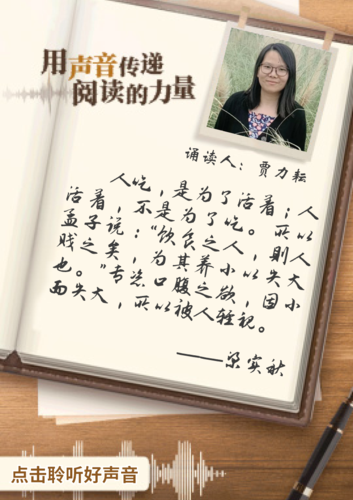 用声音传递
阅读的力量
诵读人：贾力耘
人吃，是为了活着；人
活着，不是为了吃。所以
孟子说：“饮食之人，则人
贱之矣，为其养小以失大
也。”专恣口腹之欲，因小
而失大，所以被人轻视。
——梁实秋
点击聆听好声音